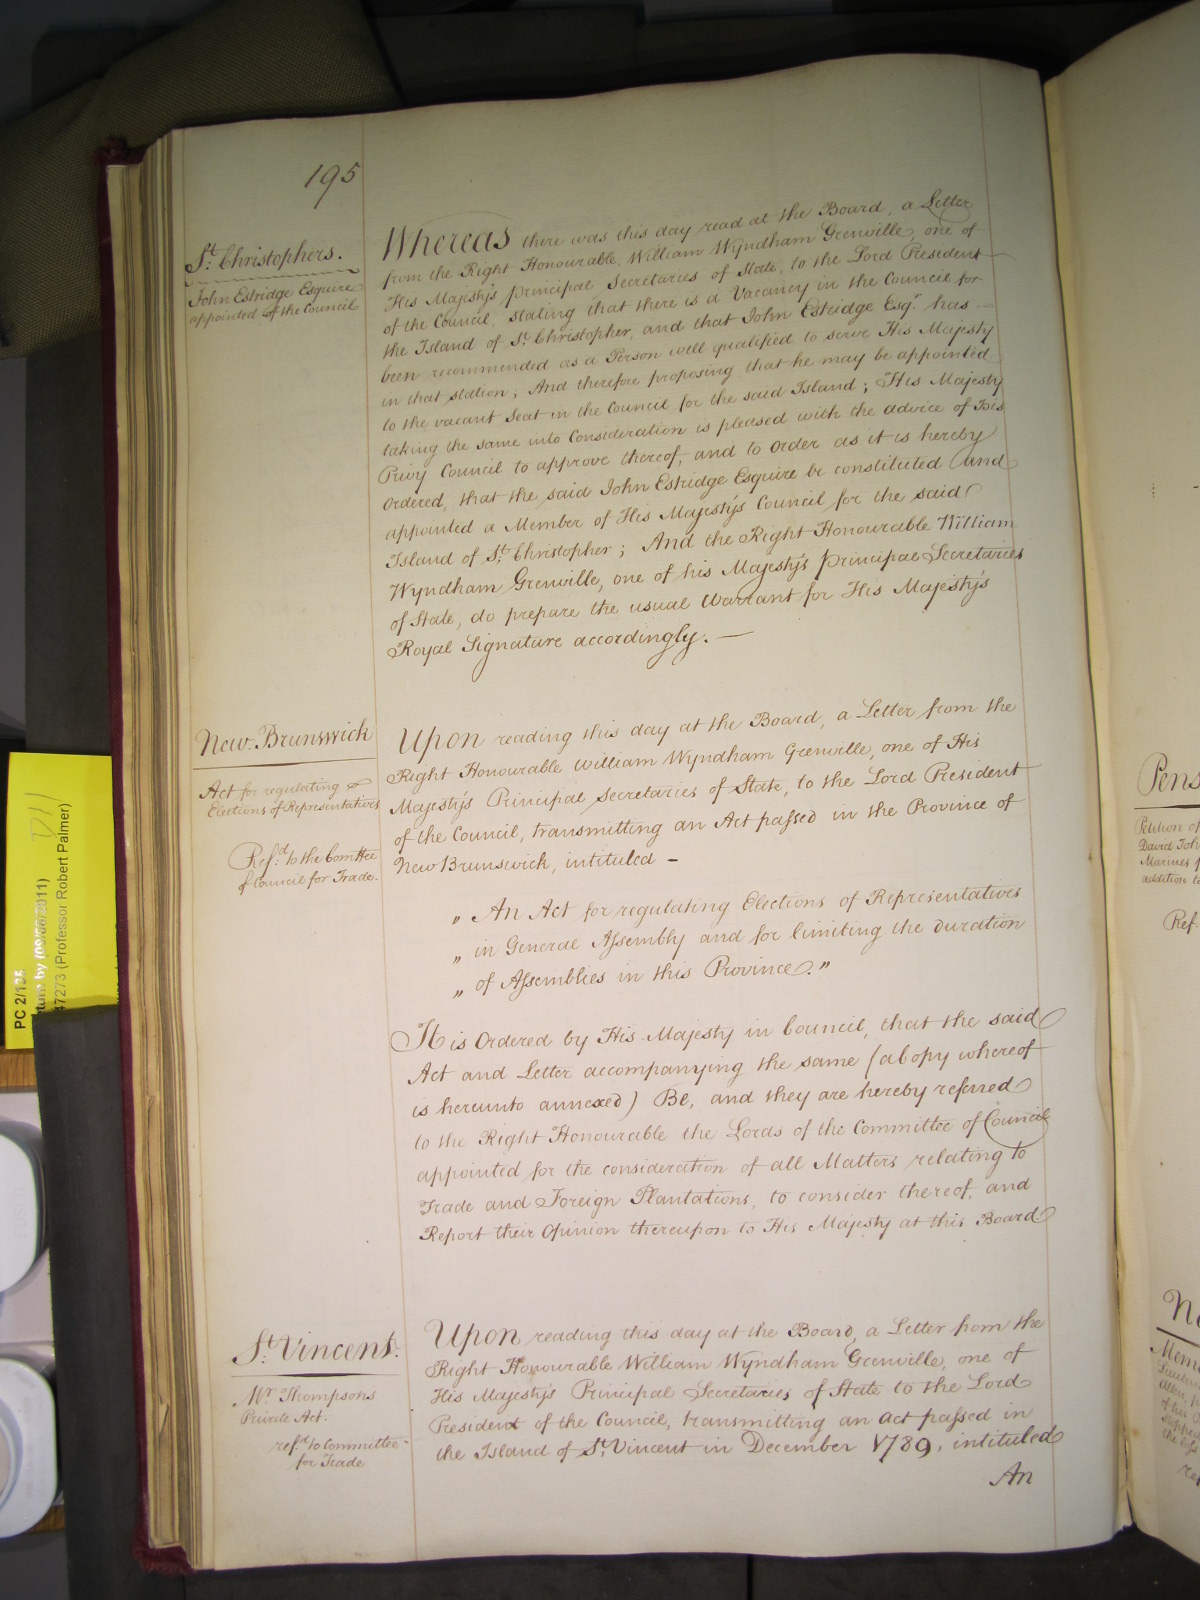 195
St. Christophers.
John Estridge Esquire
appointed of the Council
Whereas there was this day read at the Board, a Letter
from the Right Honourable, William Wyndham Grenville, one of
His Majesty's principal Secretaries of State, to the Lord President
of the Council, stating that there is a Vacancy in the Council for
the Island of St. Christopher, and that John Estridge Esqr. has
been recommended as a Person well qualified to serve His Majesty
in that station; And therefore proposing that he may be appointed
to the vacant Seat in the Council for the said Island; His Majesty
taking the same into Consideration is pleased with the advice of His
Privy Council to approve thereof, and to order as it is hereby
Ordered, that the said John Estridge Esquire be constituted and
appointed a Member of His Majesty's Council for the said
Island of St. Christopher; And the Right Honourable William
Wyndham Grenville, one of his Majesty's principal Secretaries
of State, do prepare the usual Warrant for His Majesty's
Royal Signature accordingly. —
New Brunswick
Act for regulating
Elections of Representatives
Ref.d to the Comttee
of Council for Trade.
Upon reading this day at the Board, a Letter from the
Right Honourable William Wyndham Grenville, one of His
Majesty's Principal Secretaries of State, to the Lord President
of the Council, transmitting an Act passed in the Province of
New Brunswick, intituled –
" An Act for regulating Elections of Representatives
" in General Assembly and for limiting the duration
" of Assemblies in this Province."
It is Ordered by His Majesty in Council, that the said
Act and Letter accompanying the same (a Copy whereof
is hereunto annexed) Be, and they are hereby referred
to the Right Honourable the Lords of the Committee of Council
appointed for the consideration of all Matters relating to
Trade and Foreign Plantations, to consider thereof, and
Report their Opinion thereupon to His Majesty at this Board
St. Vincent.
Mr. Thompsons
Private Act.
refd. to Committee
for Trade
Upon reading this day at the Board, a Letter from the
Right Honourable William Wyndham Grenville, one of
His Majesty's Principal Secretaries of State to the Lord
President of the Council, transmitting an Act passed in
the Island of St. Vincent in December 1789, intituled
An
PC 2/135
(09/08/2011)
47273 (Professor Robert Palmer)
Pens
Petition of
David Joh
Marines
addition to
Ref.